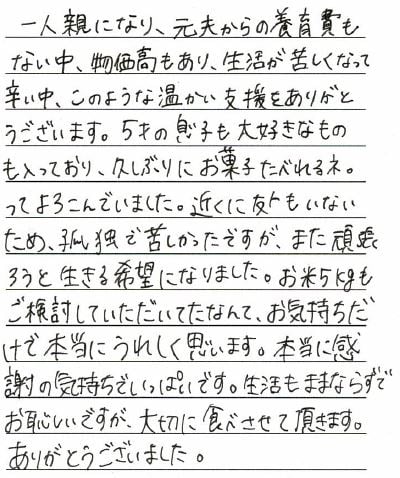 一人親になり、元夫からの養育費も
ない中、物価高もあり、生活が苦しくなって
辛い中、このような温かい支援をありがと
うございます。5才の息子も大好きなもの
も入っており、久しぶりにお菓子たべれるネ。
ってよろこんでいました。近くに友人もいない
ため、孤独で苦しかったですが、また頑張
ろうと生きる希望になりました。お米5kgも
ご検討していただいてたなんて、お気持ちだ
けで本当にうれしく思います。本当に感
謝の気持ちでいっぱいです。生活もままならずで
お恥しいですが、大切に食べさせて頂きます。
ありがとうございました。